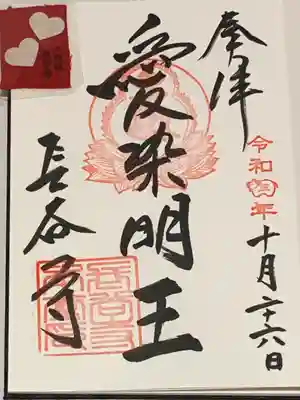 奉拝
令和年
十月二十六日
愛染明王
長谷寺